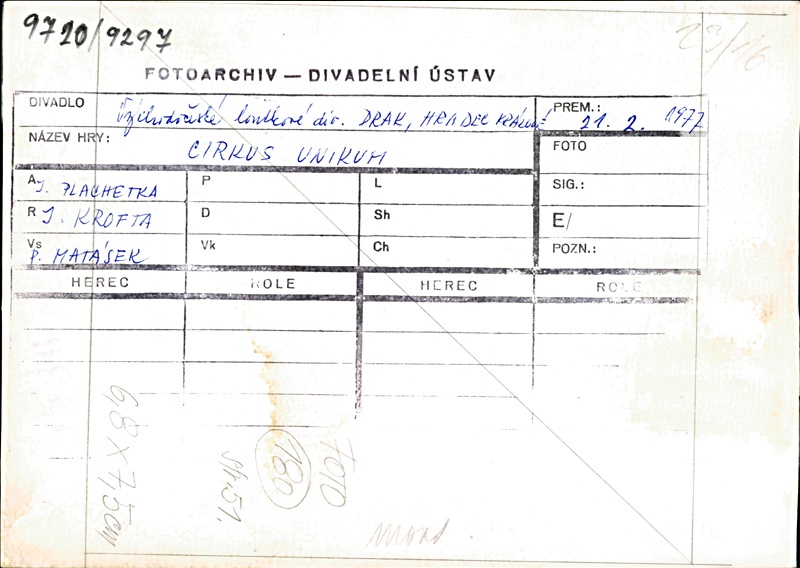 9720/9297
23/16
FOTOARCHIV — DIVADELNÍ ÚSTAV
DIVADLO Východočeské loutkové div. DRAK, HRADEC KRÁLOVÉ
PREM.: 21. 2. 1977
NÁZEV HRY: CIRKUS UNIKUM
FOTO
A J. PLACHETKA P L
SIG.:
R J. KROFTA D Sh
E/
Vs P. MATÁSEK Vk Ch
POZN.:
HEREC ROLE HEREC ROLE
6,8 x 7,5 cm
str. 51.
180
FOTO